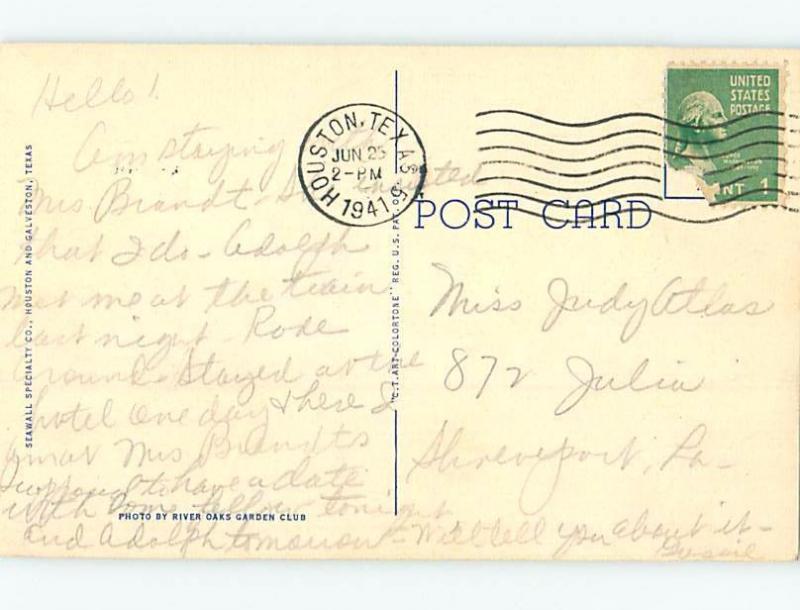 Hello!
Am staying
Mrs Brandt - invited
that I do - Adolph
met me at the train
last night - Rode
around - Stayed at the
hotel one day & here I
am at Mrs Brandts
to have a date
with some fellow tonight
and Adolph tomorrow - Will tell you about it -
SEAWALL SPECIALTY CO., HOUSTON AND GALVESTON, TEXAS
PHOTO BY RIVER OAKS GARDEN CLUB
"C.T. ART-COLORTONE" REG. U.S. PAT. OFF.
HOUSTON, TEXAS
JUN 25
2-PM
1941
UNITED
STATES
POSTAGE
NT 1
POST CARD
Miss Judy Atlas
872 Julia
Shreveport, La-